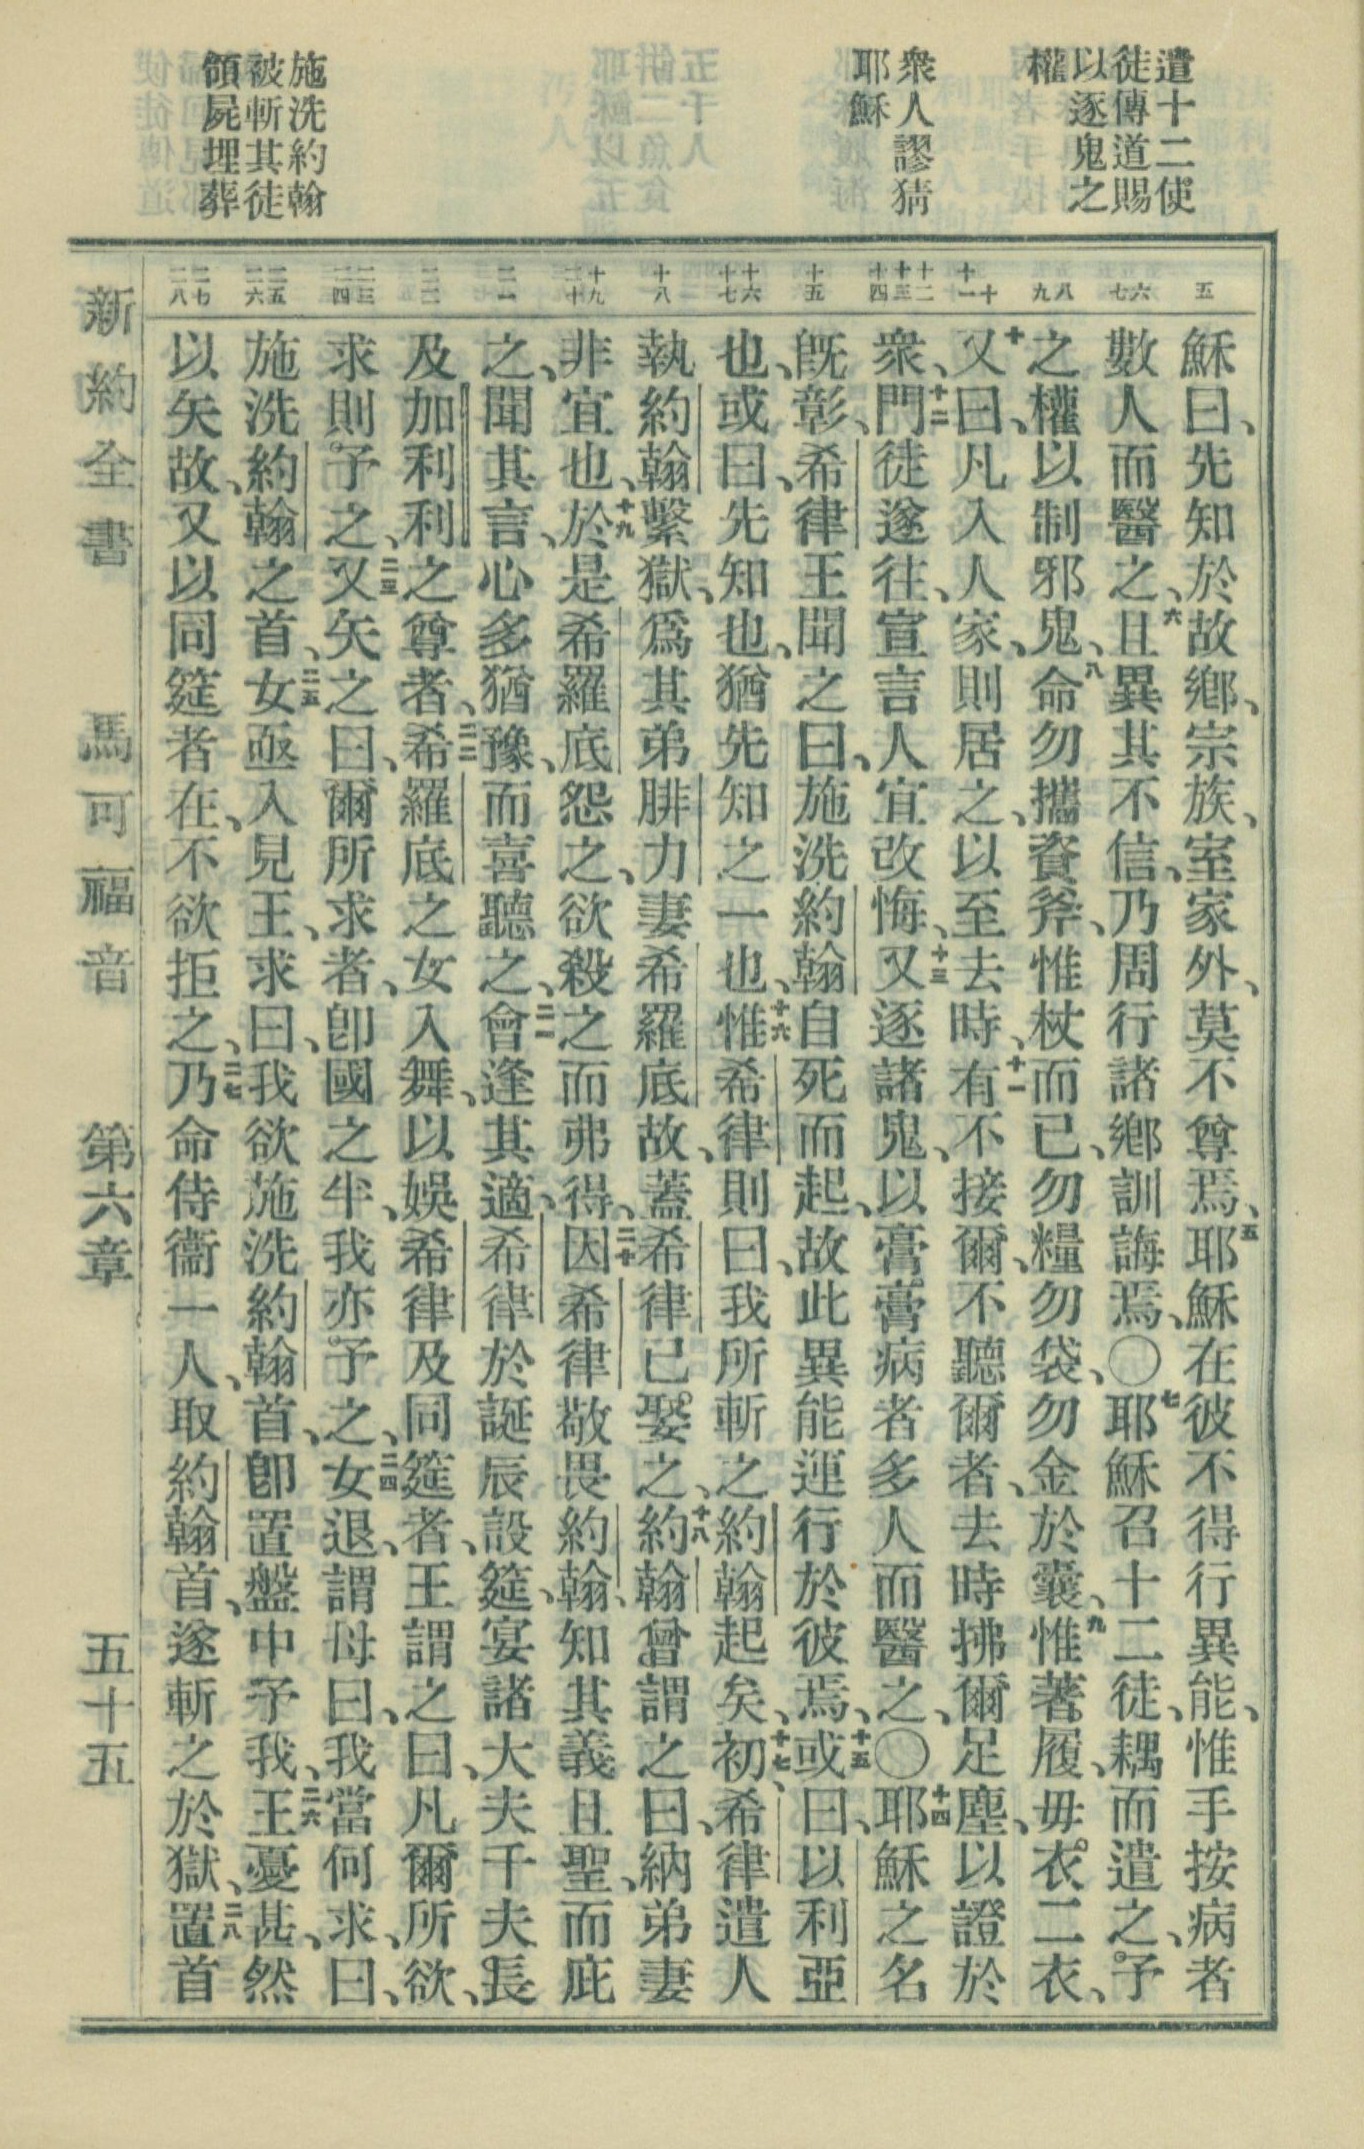 遣十二使
徒傳道賜
以逐鬼之
權
衆人謬猜
耶穌
施洗約翰
被斬其徒
領屍埋葬
五
六 七
八 九
十 十一
十二 十三 十四
十五
十六 十七
十八
十九 二十
二一
二二
二三 二四
二五 二六
二七 二八
穌曰、先知於故鄉、宗族、室家外、莫不尊焉、五耶穌在彼不得行異能、惟手按病者
數人而醫之、六且異其不信、乃周行諸鄉訓誨焉、〇七耶穌召十二徒、耦而遣之、予
之權以制邪鬼、八命勿攜資斧、惟杖而已、勿糧勿袋、勿金於囊、九惟著履、毋衣二衣、
十又曰、凡入人家、則居之、以至去時、十一有不接爾、不聽爾者、去時拂爾足塵、以證於
衆、十二門徒遂往、宣言人宜改悔、十三又逐諸鬼、以膏膏病者多人而醫之、〇十四耶穌之名
旣彰、希律王聞之曰、施洗約翰自死而起、故此異能運行於彼焉、十五或曰、以利亞
也、或曰、先知也、猶先知之一也、十六惟希律則曰、我所斬之約翰起矣、十七初、希律遣人
執約翰繫獄、爲其弟腓力妻希羅底故、蓋希律已娶之、十八約翰曾謂之曰、納弟妻
非宜也、十九於是希羅底怨之、欲殺之而弗得、二十因希律敬畏約翰、知其義且聖、而庇
之、聞其言、心多猶豫、而喜聽之、二一會逢其適、希律於誕辰設筵、宴諸大夫千夫長
及加利利之尊者、二二希羅底之女入舞、以娛希律及同筵者、王謂之曰、凡爾所欲、
求則予之、二三又矢之曰、爾所求者、卽國之半、我亦予之、二四女退、謂母曰、我當何求、曰、
施洗約翰之首、二五女亟入見王、求曰、我欲施洗約翰首、卽置盤中予我、二六王憂甚、然
以矢故、又以同筵者在、不欲拒之、二七乃命侍衞一人、取約翰首、遂斬之於獄、二八置首
新約全書 馬可福音 第六章 五十五